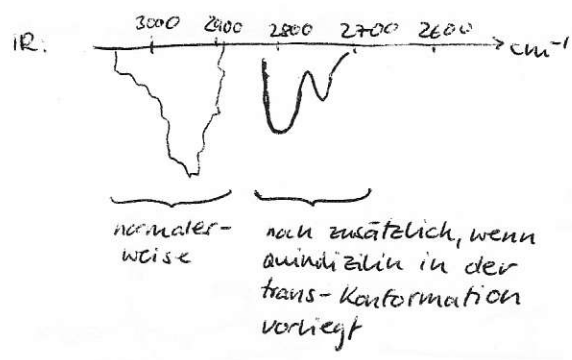 IR:
3000 2900 2800 2700 2600
cm⁻¹
normaler-
weise
noch zusätzlich, wenn
Quindizilin in der
trans-Konformation
vorliegt